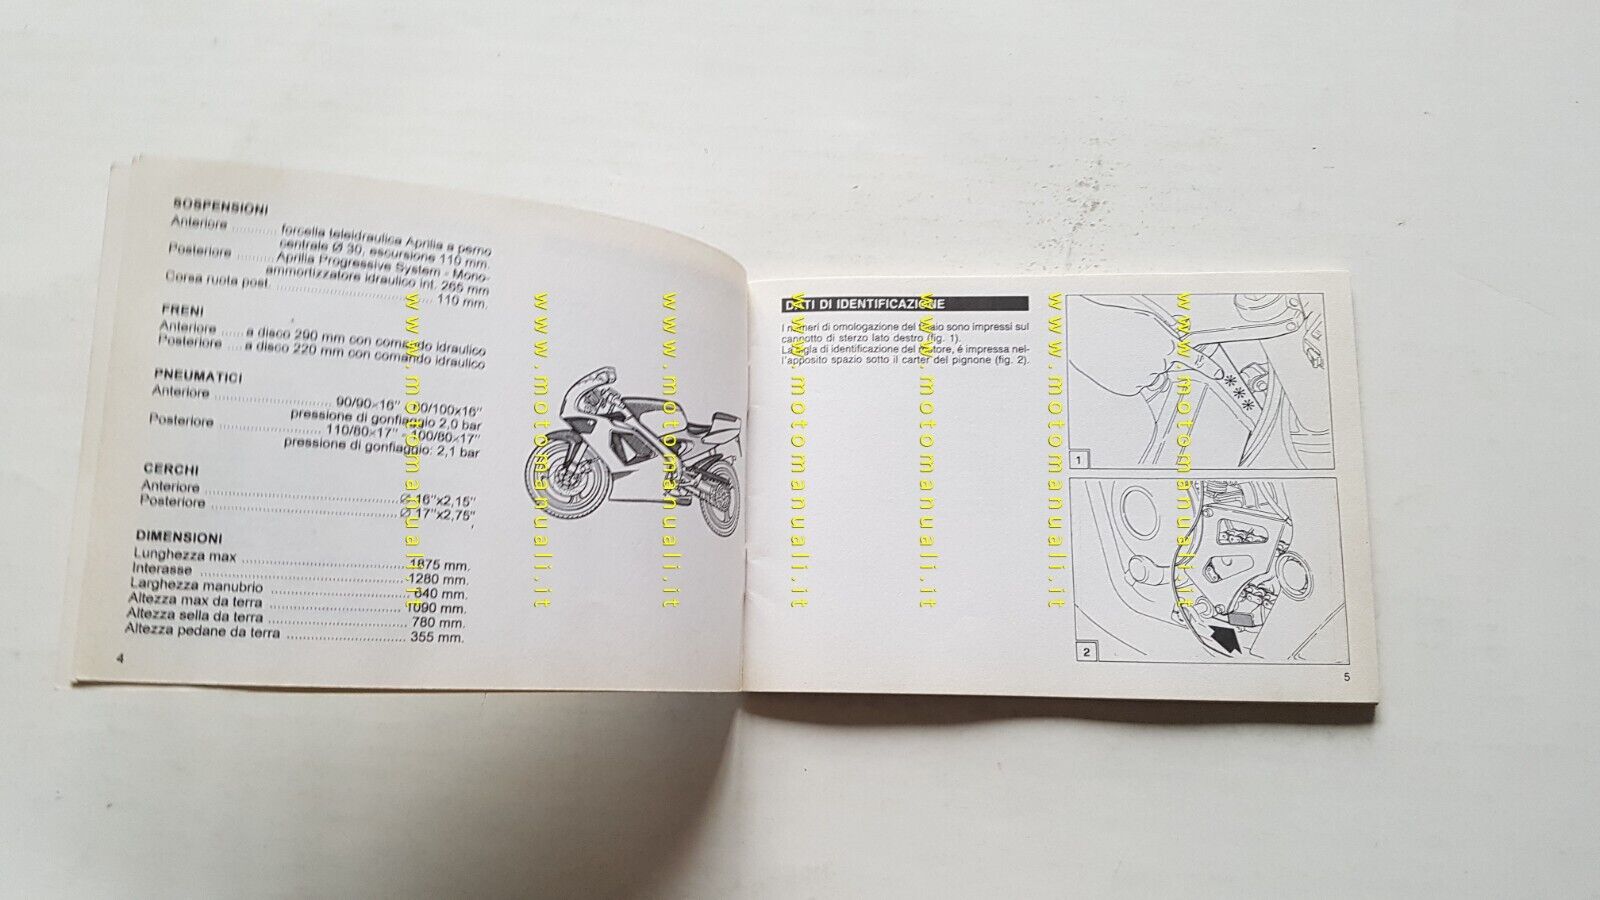 SOSPENSIONI
Anteriore ........... forcella teleidraulica Aprilia a perno
centrale Ø 30, escursione 110 mm.
Posteriore ......... Aprilia Progressive System - Mono-
ammortizzatore idraulico int. 265 mm
Corsa ruota post. .................................... 110 mm.
FRENI
Anteriore ..... a disco 290 mm con comando idraulico
Posteriore .... a disco 220 mm con comando idraulico
PNEUMATICI
Anteriore .......................... 90/90×16" 100/100x16"
pressione di gonfiaggio 2,0 bar
Posteriore ....................... 110/80×17" 100/80×17"
pressione di gonfiaggio: 2,1 bar
CERCHI
Anteriore ............................................ Ø 16"x2,15"
Posteriore ........................................... Ø 17"x2,75"
DIMENSIONI
Lunghezza max ..................................... 1875 mm.
Interasse ............................................. 1280 mm.
Larghezza manubrio ............................... 640 mm.
Altezza max da terra .............................. 1090 mm.
Altezza sella da terra .............................. 780 mm.
Altezza pedane da terra ........................... 355 mm.
4
DATI DI IDENTIFICAZIONE
I numeri di omologazione del telaio sono impressi sul
cannotto di sterzo lato destro (fig. 1).
La sigla di identificazione del motore, é impressa nel-
l'apposito spazio sotto il carter del pignone (fig. 2).
1
2
5
www.motomanuali.it
www.motomanuali.it
www.motomanuali.it
www.motomanuali.it
www.motomanuali.it
www.motomanuali.it
www.motomanuali.it